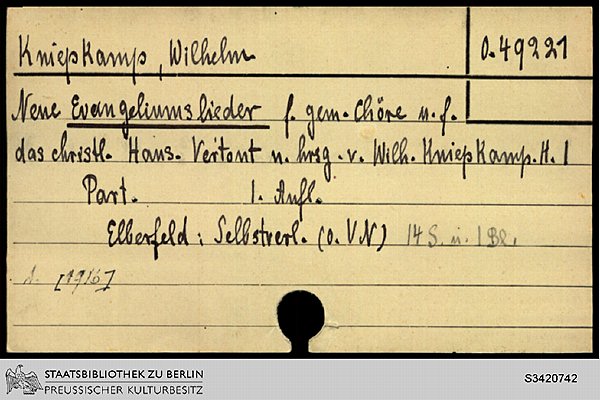 Kniepkamp, Wilhelm
O. 49221
Neue Evangeliumslieder f. gem. Chöre u. f.
das christl. Haus. Vertont u. hrsg. v. Wilh. Kniepkamp. H. 1
Part. 1. Aufl.
Elberfeld: Selbstverl. (o. VN) 14 S. u. 1 Bl.
[1916]
STAATSBIBLIOTHEK ZU BERLIN
PREUSSISCHER KULTURBESITZ
S3420742